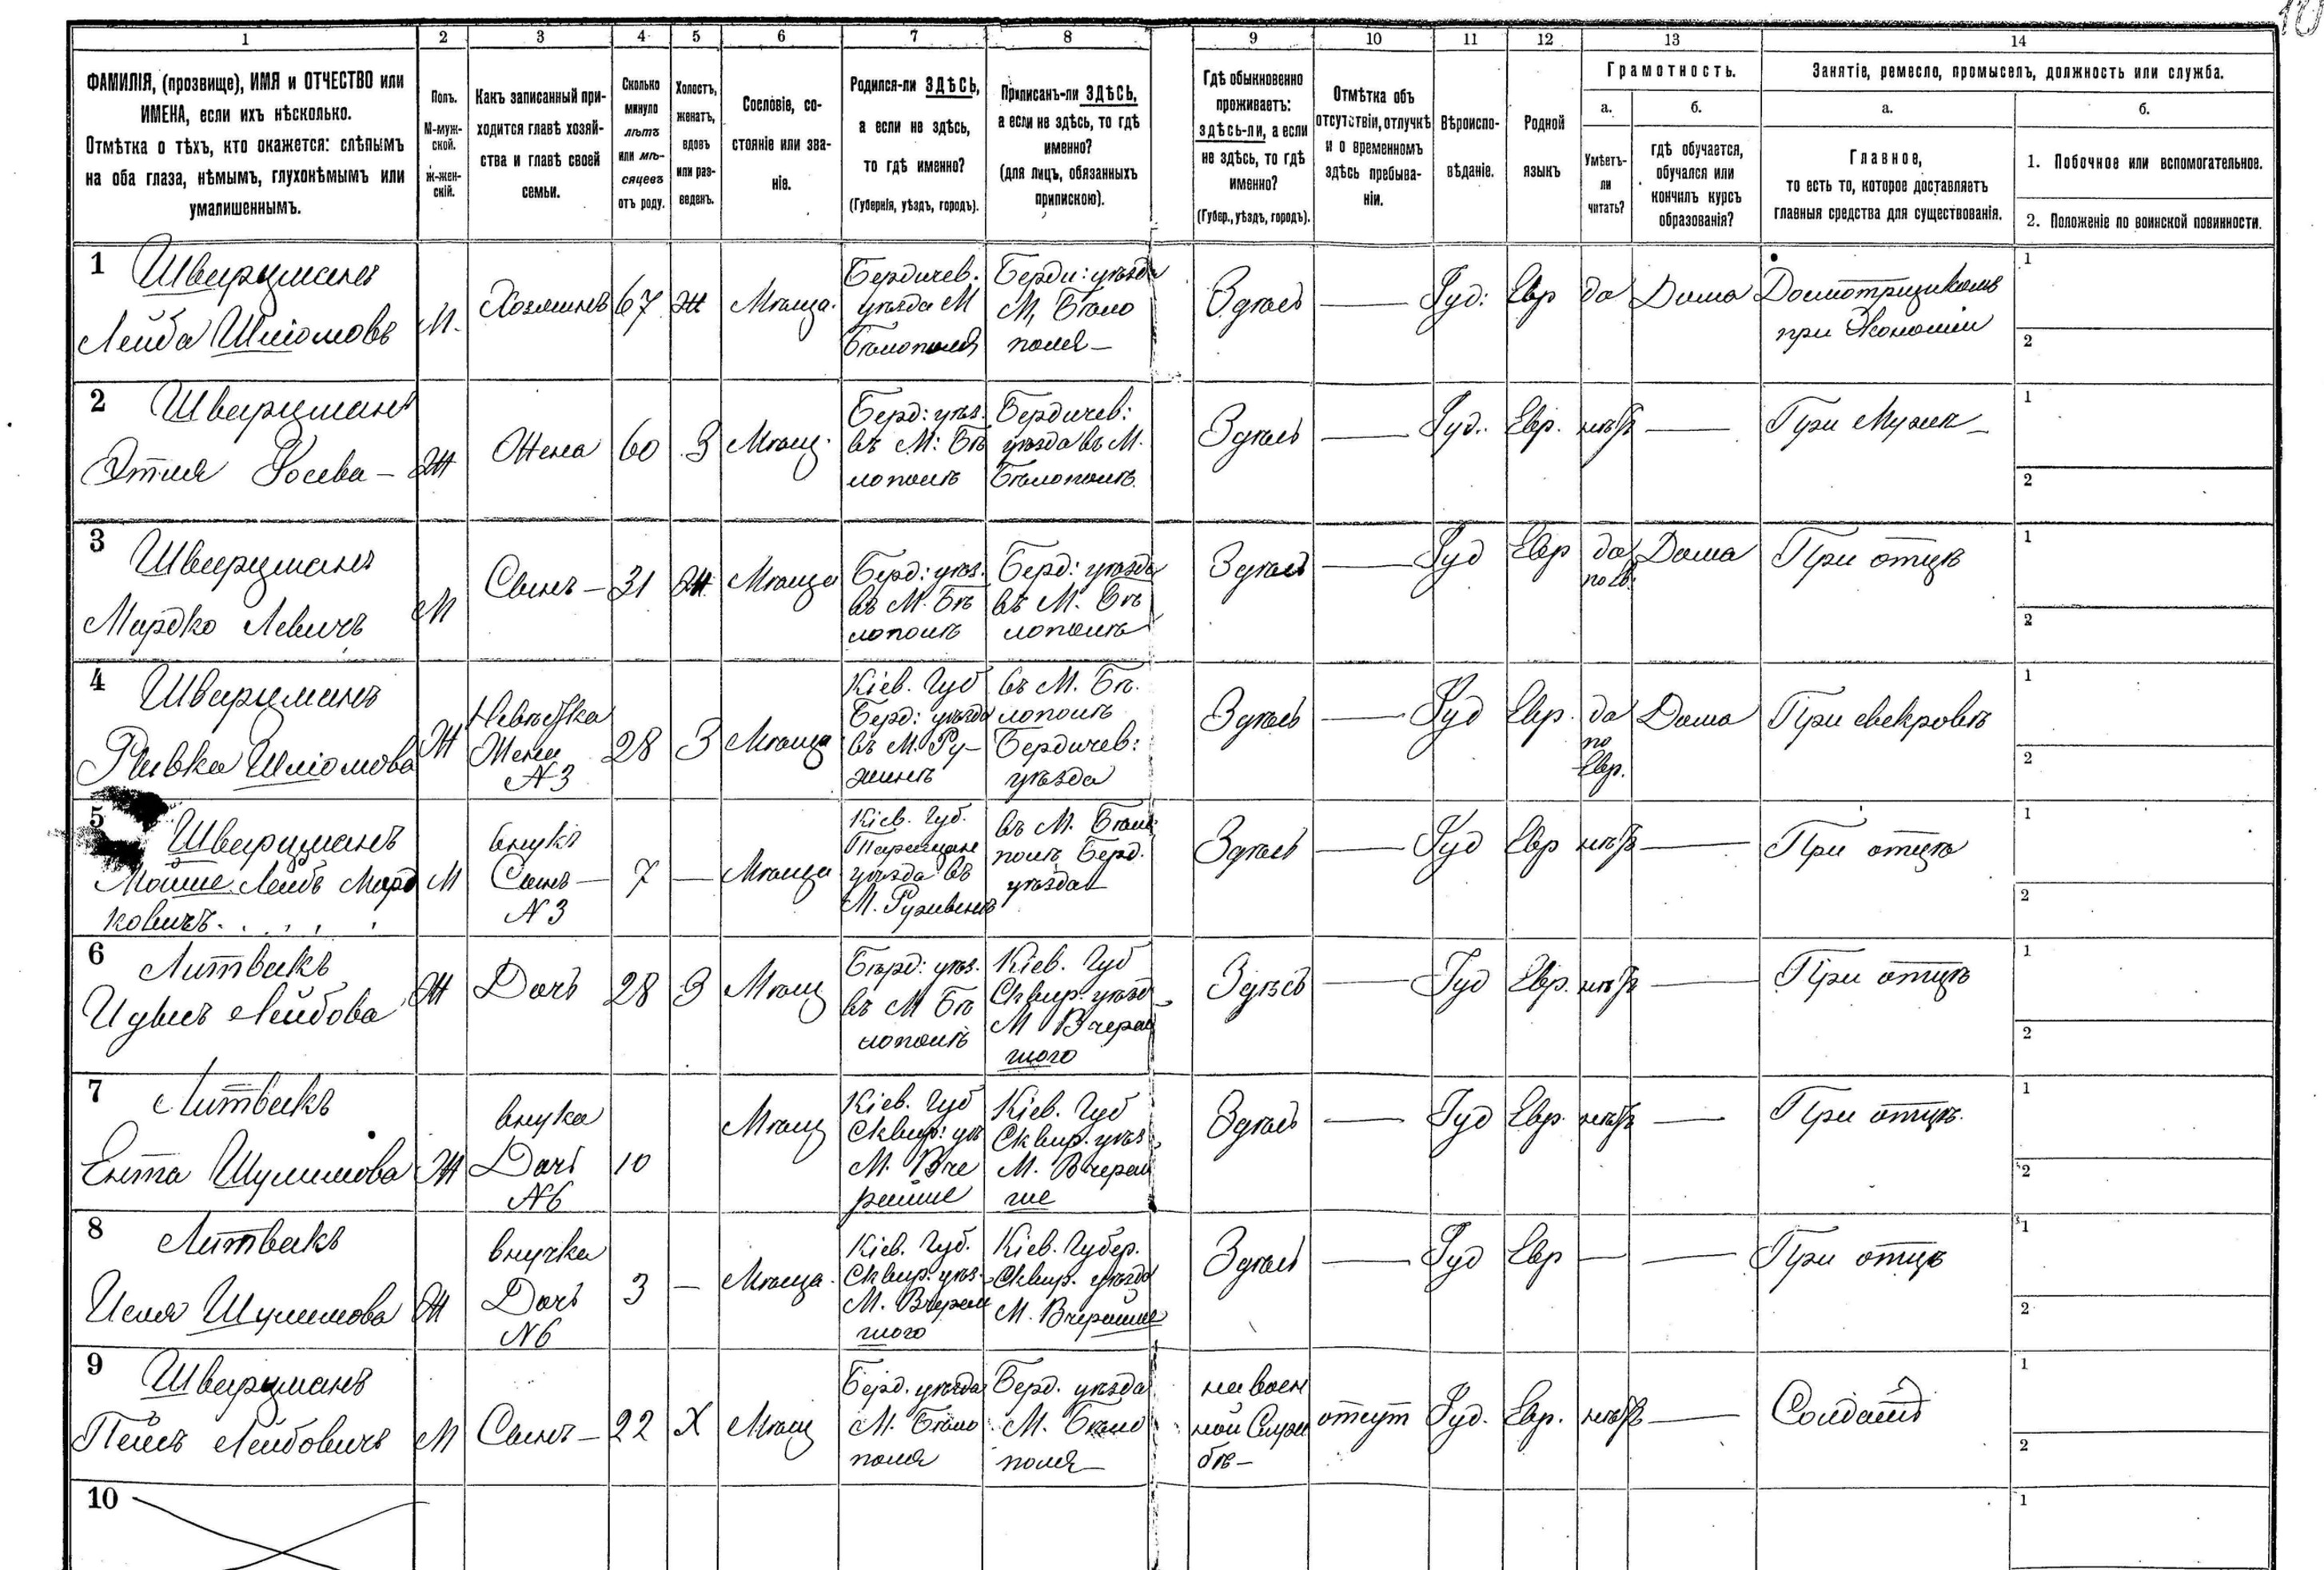 1 2 3 4 5 6 7 8 9 10 11 12 13 14
ФАМИЛІЯ, (прозвище), ИМЯ и ОТЧЕСТВО или
ИМЕНА, если ихъ нѣсколько.
Отмѣтка о тѣхъ, кто окажется: слѣпымъ
на оба глаза, нѣмымъ, глухонѣмымъ или
умалишеннымъ.
Полъ.
М-муж-
ской.
Ж-жен-
скій.
Какъ записанный при-
ходится главѣ хозяй-
ства и главѣ своей
семьи.
Сколько
минуло
лѣтъ
или мѣ-
сяцевъ
отъ роду.
Холостъ,
женатъ,
вдовъ
или раз-
веденъ.
Сословіе, со-
стояніе или зва-
ніе.
Родился-ли ЗДѢСЬ,
а если не здѣсь,
то гдѣ именно?
(Губернія, уѣздъ, городъ).
Приписанъ-ли ЗДѢСЬ,
а если не здѣсь, то гдѣ
именно?
(для лицъ, обязанныхъ
припискою).
Гдѣ обыкновенно
проживаетъ:
здѣсь-ли, а если
не здѣсь, то гдѣ
именно?
(Губер., уѣздъ, городъ).
Отмѣтка объ
отсутствіи, отлучкѣ
и о временномъ
здѣсь пребыва-
ніи.
Вѣроиспо-
вѣданіе.
Родной
языкъ
Грамотность.
а.
Умѣетъ-
ли
читать?
б.
гдѣ обучается,
обучался или
кончилъ курсъ
образованія?
Занятіе, ремесло, промыселъ, должность или служба.
а.
Главное,
то есть то, которое доставляетъ
главныя средства для существованія.
б.
1. Побочное или вспомогательное.
2. Положеніе по воинской повинности.
1 Шварцманъ
Лейба Шліомовъ
М.
Хозяинъ
67
Ж
Мѣща.
Бердичев.
уѣзда М
Бѣлополя
Берди: уѣзда
М, Бѣло
поля —
Здѣсь
—
Іуд:
Евр
да
Дома
Досмотрщикомъ
при Экономіи
1
2
2 Шварцманъ
Этля Іосева —
Ж
Жена
60
З
Мѣщ.
Берд: уѣз.
въ М: Бѣ
лополѣ
Бердичев:
уѣзда въ М.
Бѣлополѣ
Здѣсь
—
Іуд.
Евр.
нѣтъ
—
При Мужѣ —
1
2
3 Шварцманъ
Мардко Левичъ
М
Сынъ —
31
Ж
Мѣща
Берд: уѣз.
въ М. Бѣ
лополѣ
Берд: уѣзда
въ М. Бѣ
лополѣ
Здѣсь
—
Іуд
Евр
да
по Ев:
Дома
При отцѣ
1
2
4 Шварцманъ
Ривка Шліомова
Ж
Невѣстка
Жена
N 3
28
З
Мѣща
Кіев. Губ
Берд: уѣзда
въ М. Ру-
жинѣ
въ М. Бѣ.
лополѣ
Бердичев:
уѣзда
Здѣсь
—
Іуд
Евр.
да
по
Евр.
Дома
При свекровѣ
1
2
5 Шварцманъ
Мойше Лейбъ Мард
ковичъ.
М
внукъ
Сынъ —
N 3
7
—
Мѣща
Кіев. Губ.
уѣзда въ
въ М. Бѣло
полѣ Берд.
уѣзда
Здѣсь
—
Іуд
Евр
нѣтъ
—
При отцѣ
1
2
6 Литвакъ
Идысъ Лейбова
Ж
Дочь
28
З
Мѣщ
Бѣрд: уѣз.
въ М Бѣ
лополѣ
Кіев. Губ
Сквир. уѣзд
М Вчерай
шого
Здѣсь
—
Іуд
Евр.
нѣтъ
—
При отцѣ
1
2
7 Литвакъ
Ента Шулимова
Ж
внука
Дочь
N 6
10
Мѣщ
Кіев. Губ
Сквир: уѣ
М. Вче
райше
Кіев. Губ
Сквир. уѣз
М. Вчерай
ше
Здѣсь
—
Іуд
Евр.
нѣтъ
—
При отцѣ.
1
2
8 Литвакъ
Шулимова
Ж
внучка
Дочь
N 6
3
—
Мѣща.
Кіев. Губ.
Сквир. уѣз.
М. Вчерай
шого
Кіев. Губер.
Сквир. уѣзда
М. Вчерайше
Здѣсь
—
Іуд
Евр
—
—
При отцѣ
1
2
9 Шварцманъ
Лейбовичъ
М
Сынъ —
22
Х
Мѣщ
Берд. уѣзда
М. Бѣло
поля
Берд. уѣзда
М. Бѣло
поля —
на воен
ной Служ
бѣ —
отсут
Іуд.
Евр.
нѣтъ
—
Солдатъ
1
2
10
1